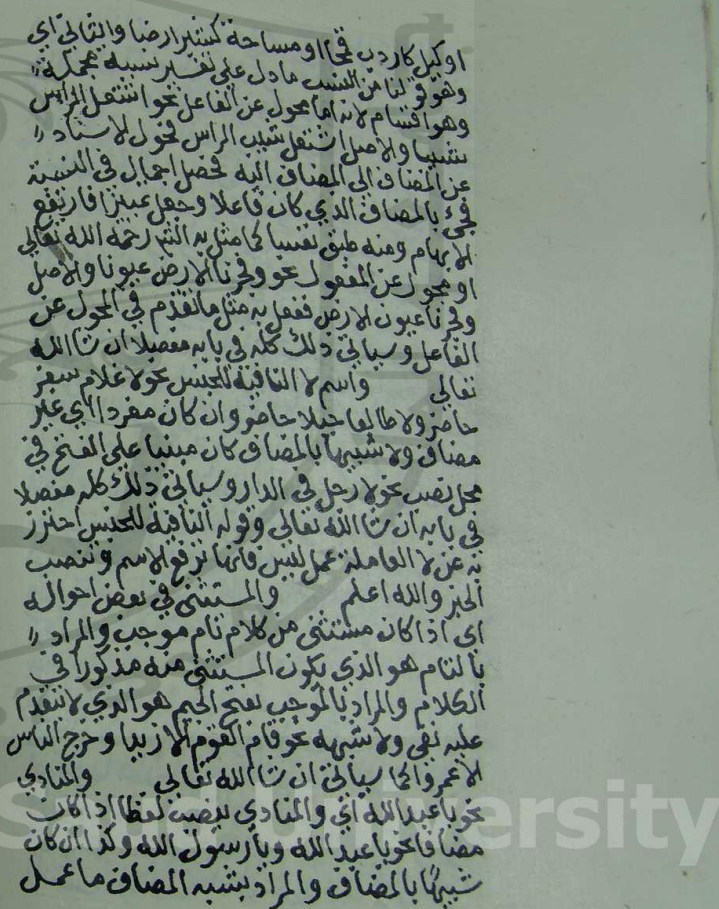 او كيل كاردب قمحا او مساحة كشبر ارضا والثاني اي
وهو قولنا من النسب ما دل على تفسير نسبة مجملة
وهو اقسام لانه اما محول عن الفاعل نحو اشتعل الراس
شيبا والاصل اشتعل شيب الراس فحول الاسناد
عن المضاف الى المضاف اليه فحصل اجمال في النسبة
فجيء بالمضاف الذي كان فاعلا وجعل تمييزا فارتفع
الابهام ومنه طبق نفسا كما مثل به الشر رحمه الله تعالى
او محول عن المفعول نحو وفجرنا الارض عيونا والاصل
وفجرنا عيون الارض ففعل به مثل ما تقدم في المحول عن
الفاعل وسياتي ذلك كله في بابه مفصلا ان شا الله
تعالى واسم لا النافية للجنس نحو لا غلام سفر
حاضر ولا طالعا جبلا حاضر وان كان مفردا اي غير
مضاف ولا شبيها بالمضاف كان مبنيا على الفتح في
محل نصب نحو لا رجل في الدار وسياتي ذلك كله مفصلا
في بابه ان شا الله تعالى وقوله النافية للجنس احترز
به عن لا العاملة عمل ليس فانها ترفع الاسم وتنصب
الخبر والله اعلم والمستثنى في بعض احواله
اي اذا كان مستثنى من كلام تام موجب والمراد
بالتام هو الذي يكون المستثنى منه مذكورا في
الكلام والمراد بالموجب بفتح الجيم هو الذي لا يتقدم
عليه نفي ولا شبهه نحو قام القوم الا زيدا وخرج الناس
الا عمروا كما سياتي ان شا الله تعالى والمنادي
نحو يا عبد الله اي والمنادي ينصب لفظا اذا كان
مضافا نحو يا عبد الله ويا رسول الله وكذا ان كان
شبيها بالمضاف والمراد بشبه المضاف ما عمل
Saud University